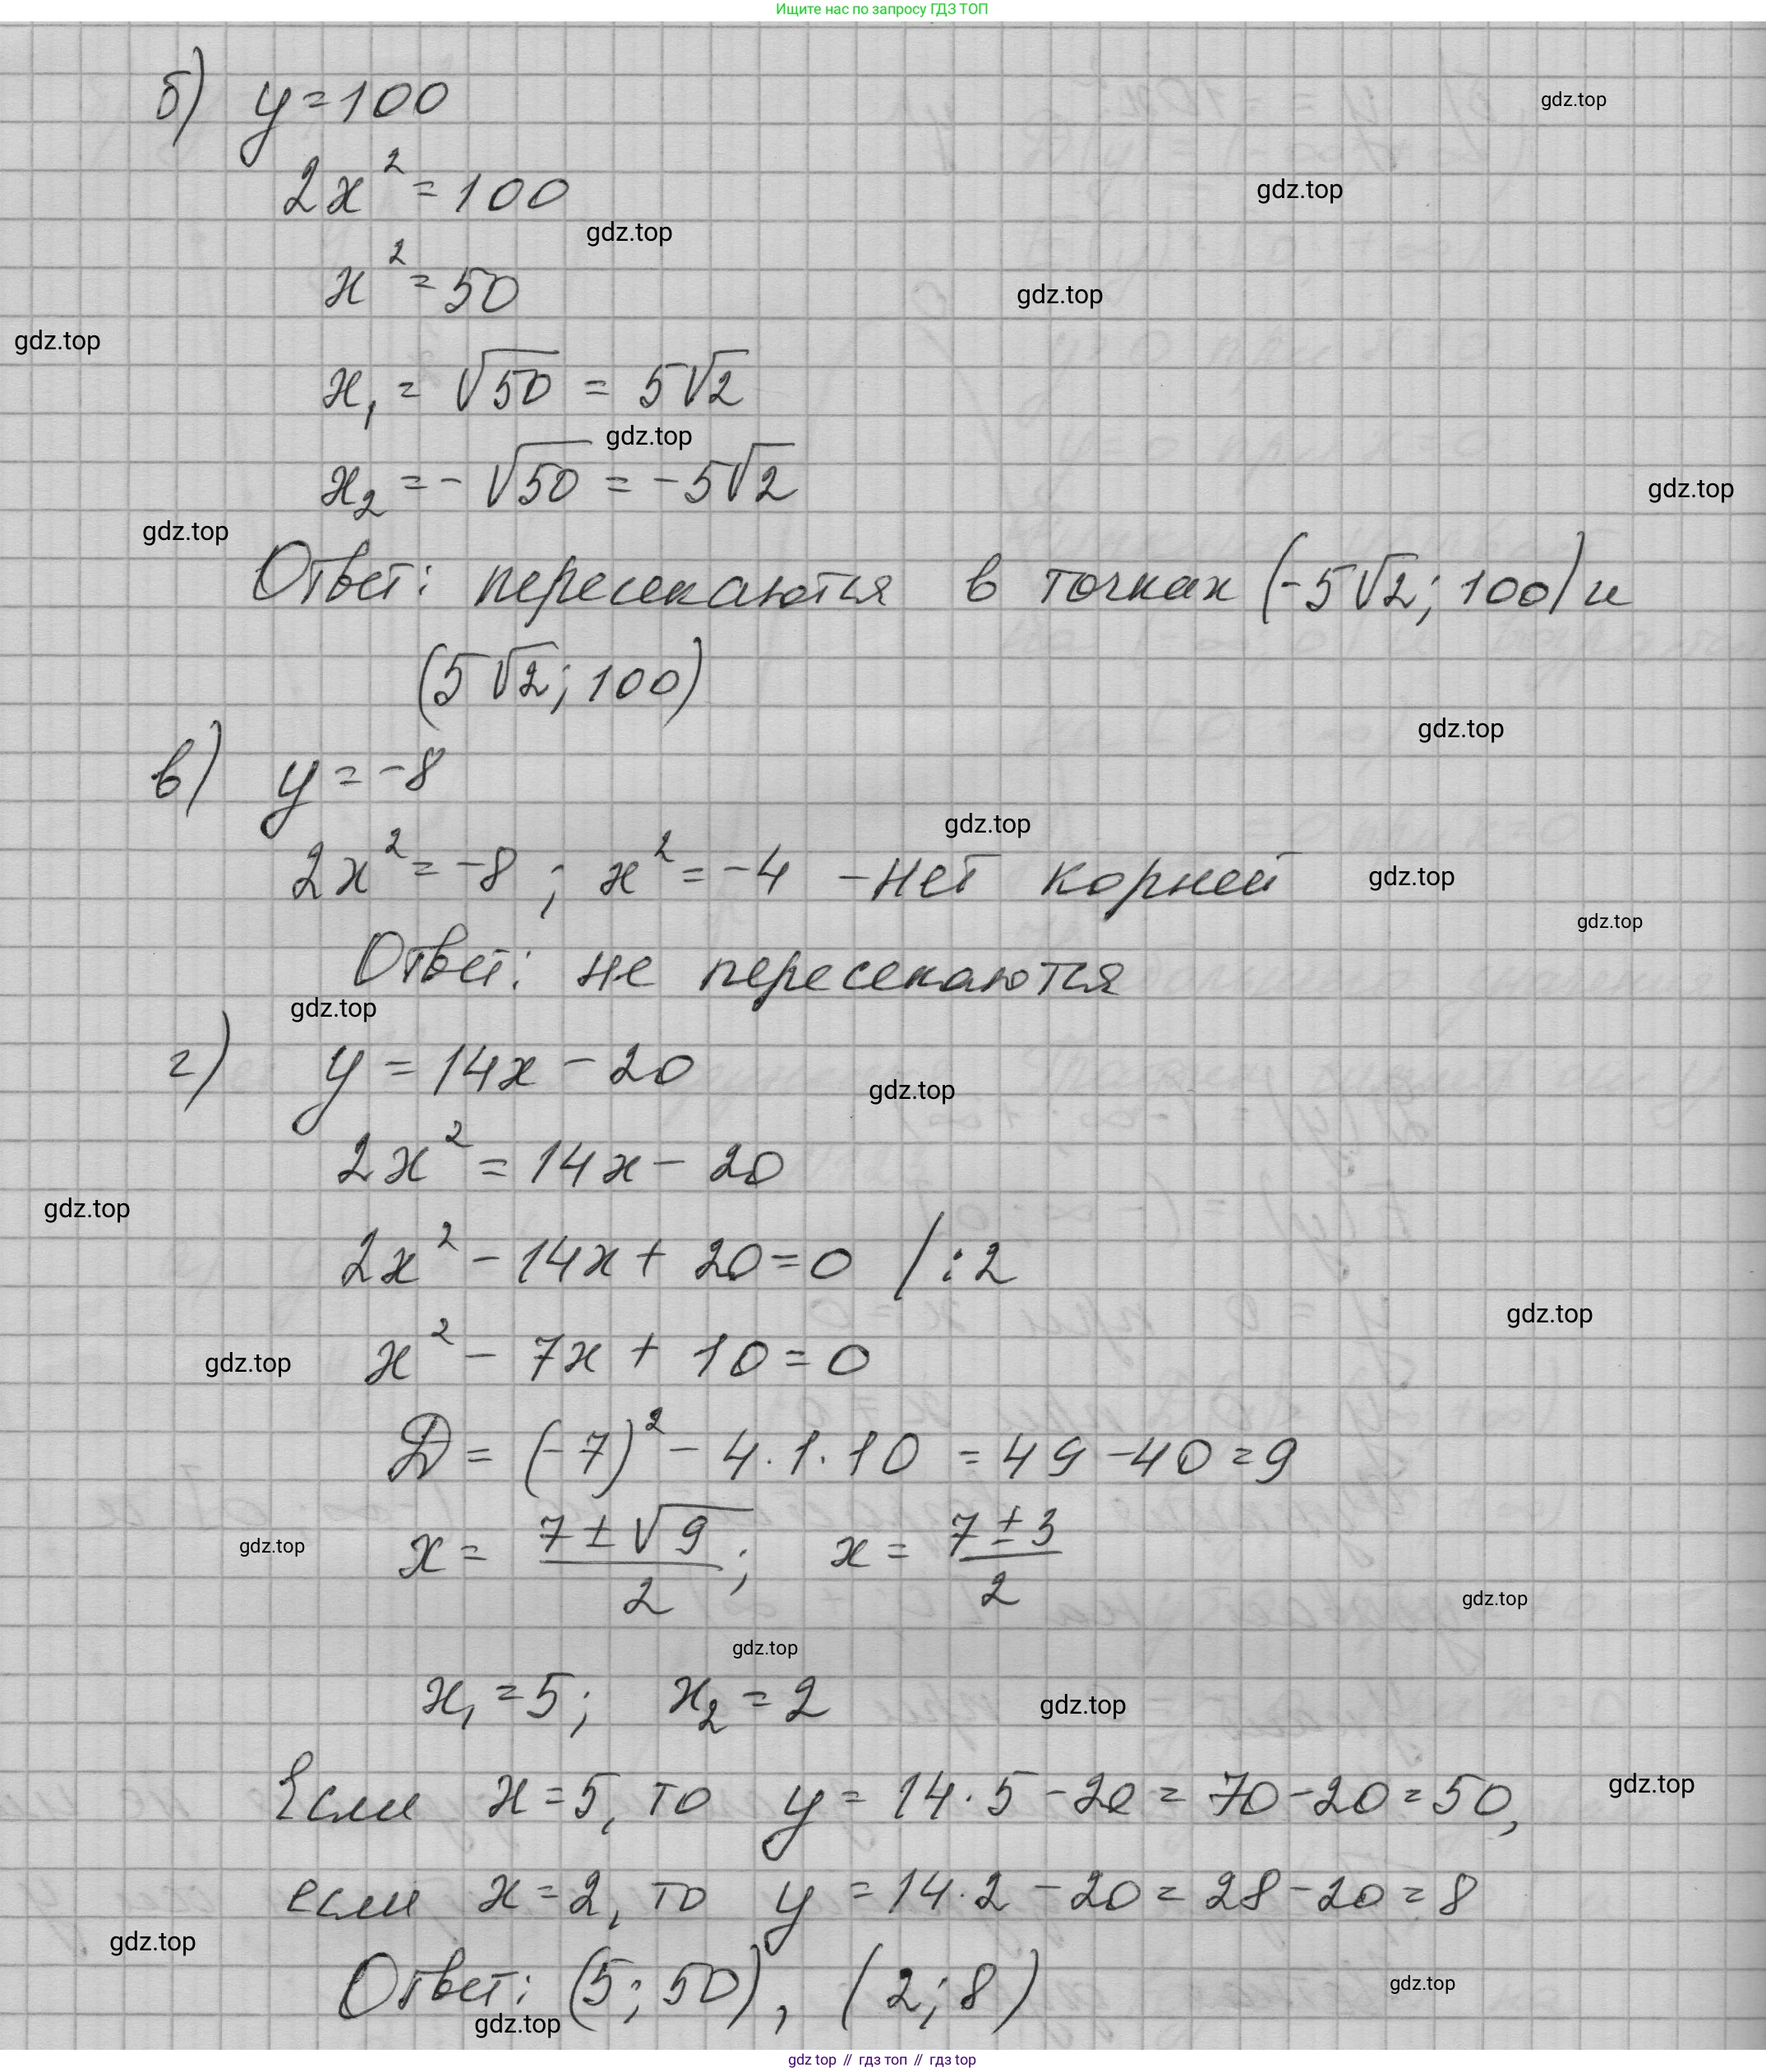 Ищите нас по запросу ГДЗ ТОП
б) y = 100
gdz.top
2x² = 100
gdz.top
gdz.top
x² = 50
gdz.top
gdz.top
x₁ = √50 = 5√2
gdz.top
x₂ = -√50 = -5√2
gdz.top
gdz.top
Ответ: пересекаются в точках (-5√2; 100) и
(5√2; 100)
gdz.top
в) y = -8
gdz.top
2x² = -8 ; x² = -4 - нет корней
gdz.top
gdz.top
Ответ: не пересекаются
gdz.top
г) y = 14x - 20
gdz.top
2x² = 14x - 20
gdz.top
2x² - 14x + 20 = 0 / : 2
gdz.top
x² - 7x + 10 = 0
gdz.top
D = (-7)² - 4·1·10 = 49 - 40 = 9
gdz.top
x = (7 ± √9)/2 ; x = (7 ± 3)/2
gdz.top
gdz.top
x₁ = 5; x₂ = 2
gdz.top
Если x = 5, то y = 14·5 - 20 = 70 - 20 = 50,
gdz.top
если x = 2, то y = 14·2 - 20 = 28 - 20 = 8
gdz.top
Ответ: (5; 50), (2; 8)
gdz.top
gdz.top
gdz top // гдз топ // гдз top